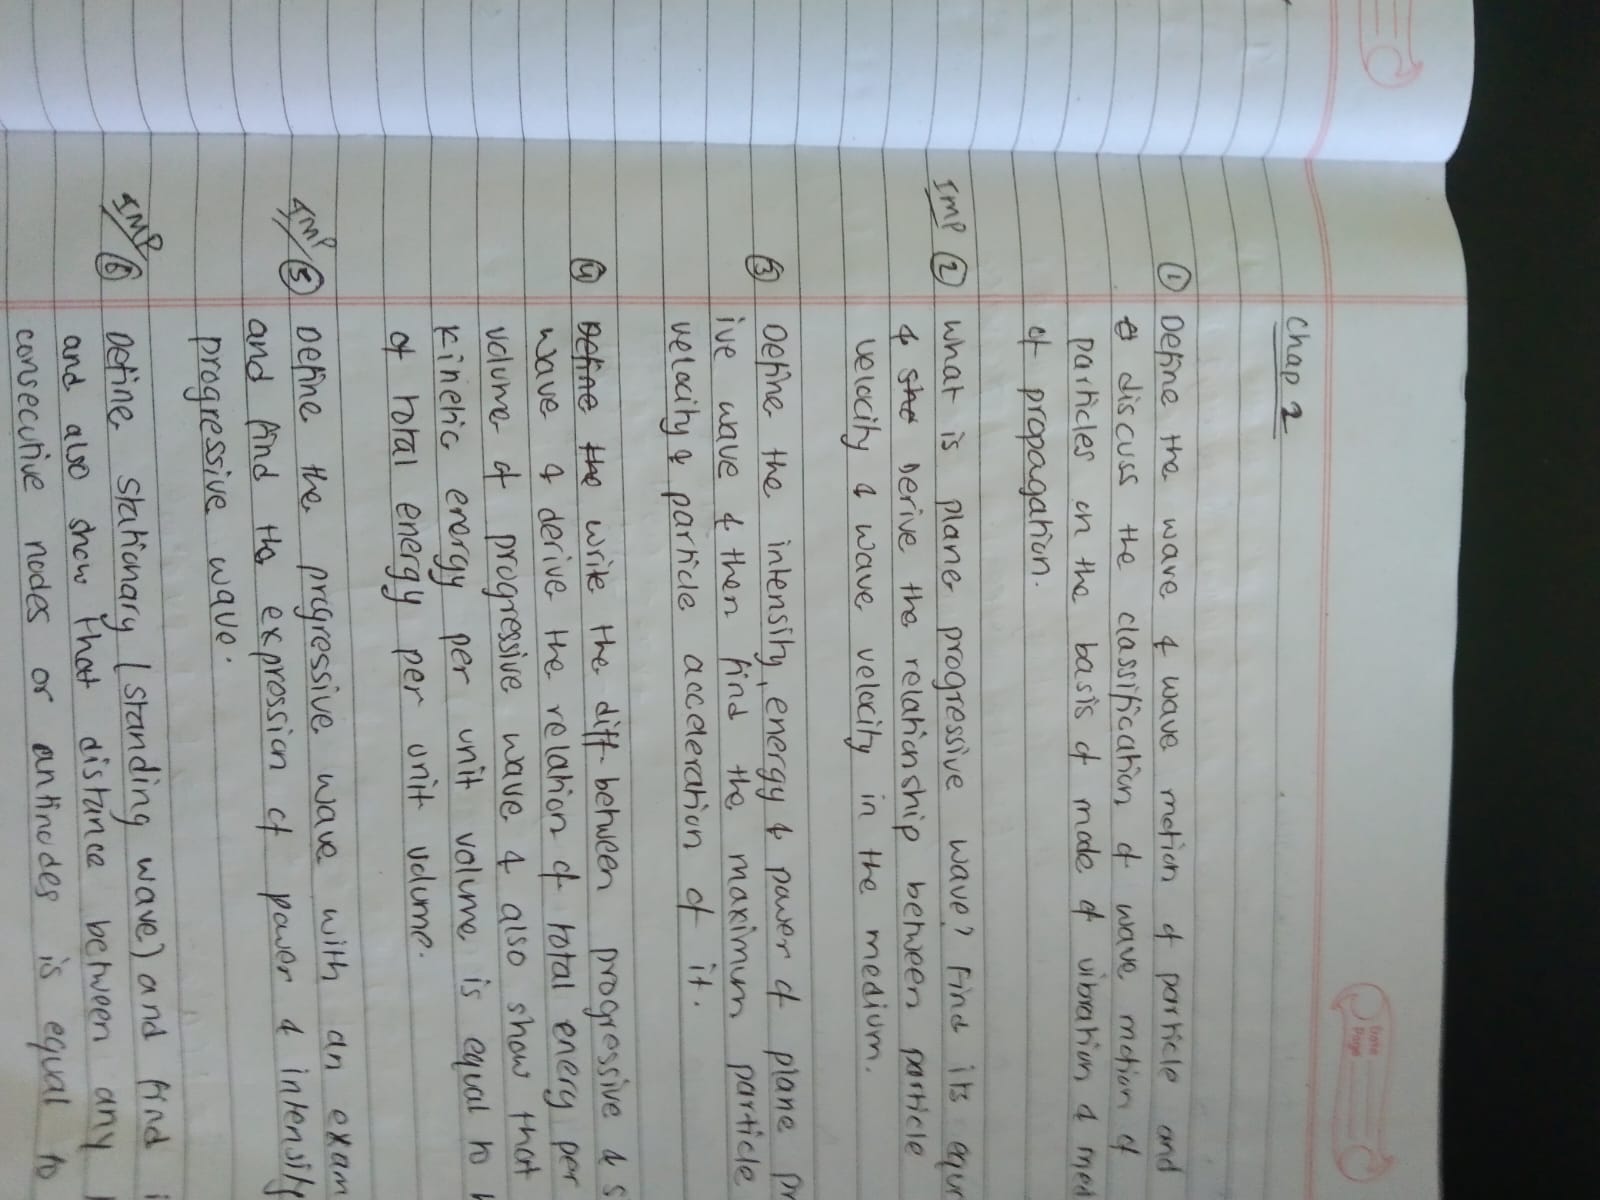 Date
Page
Chap 2
① Define the wave & wave motion of particle and
discuss the classification of wave motion of
particles on the basis of mode of vibration & med
of propagation.
IMP ② what is plane progressive wave? Find its equa
& Derive the relationship between particle
velocity & wave velocity in the medium.
③ Define the intensity, energy & power of plane pr
ive wave & then find the maximum particle
velocity & particle acceleration of it.
④ Define the write the diff. between progressive & s
wave & derive the relation of total energy per
volume of progressive wave & also show that
kinetic energy per unit volume is equal to h
of total energy per unit volume.
IMP ⑤ Define the progressive wave with an exam
and find the expression of power & intensity
progressive wave.
IMP ⑥ Define stationary (standing wave) and find i
and also show that distance between any
consecutive nodes or antinodes is equal to